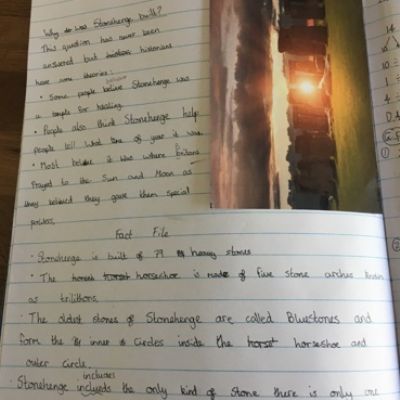 Why do was Stonehenge built?
This question has never been
answered but historians
have some theories:
believe
• Some people belive Stonehenge was
a temple for healing.
• People also think Stonehenge help
people tell what time of year it was.
• Most believe it was where britons
Prayed to the Sun and Moon as
they believed they gave them special
powers.
Fact File
• Stonehenge is built of 79 heavy stones
• The horseshoe is made of five stone arches known
as trilithons.
• The oldest stones of Stonehenge are called Bluestones and
form the inner circles inside the horseshoe and
outer circle.
includes
• Stonehenge the only kind of stone there is only one